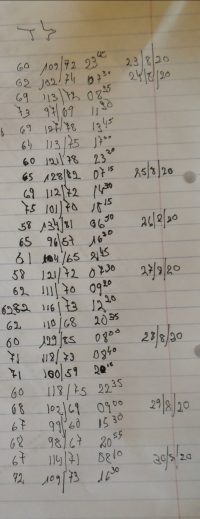 60 102/72 23 45 23/8/20
62 102/74 07 30 24/8/20
69 113/72 08 35
73 97/09 11 30
69 127/78 13 45
64 113/75 17 00
60 121/78 23 20
65 128/82 07 15 25/8/20
69 112/72 14 30
75 101/70 18 15
58 134/81 06 50 26/8/20
65 96/57 16 30
61 104/65 21 45
58 121/72 07 30 27/8/20
62 111/70 09 20
6282 116/73 12 20
62 110/68 20 55
60 129/85 08 00 28/8/20
71 118/73 08 40
71 100/59
60 118/75 22 35
68 102/69 09 00 29/8/20
67 99/60 15 30
68 98/67 20 55
67 114/71 08 10 30/8/20
72 109/73 16 30